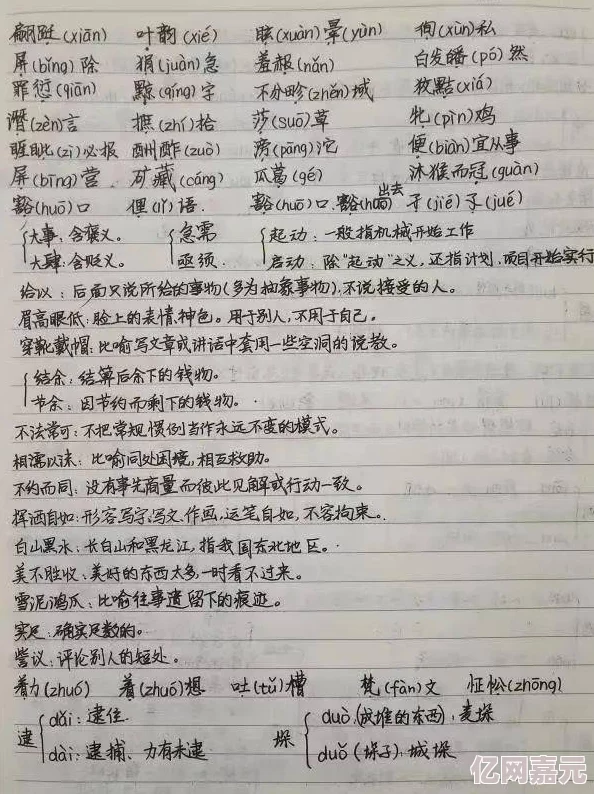 翩跹(xiān) 叶韵(xié) 眩(xuàn)晕(yùn) 徇(xùn)私
屏(bǐng)除 狷(juàn)急 羞赧(nǎn) 白发皤(pó)然
罪愆(qiān) 黥(qíng)字 不分畛(zhěn)域 狡黠(xiá)
谮(zèn)言 摭(zhí)拾 莎(suō)草 牝(pìn)鸡
睚眦(zì)必报 酬酢(zuò) 滂(pāng)沱 便(biàn)宜从事
屏(bīng)营 矿藏(cáng) 瓜葛(gé) 沐猴而冠(guàn)
豁(huō)口 俚(lǐ)语 豁(huō)口 豁(huō)出去 孑(jié)孓(jué)
大事:含褒义。 急需 起动:一般指机械开始工作
大肆:含贬义。 亟须 启动:除"起动"之义,还指计划,项目开始实行
给以:后面只说所给的事物(多为抽象事物),不说接受的人。
眉高眼低:脸上的表情,神色。用于别人,不用于自己。
穿靴戴帽:比喻写文章或讲话中套用一些空洞的说教。
结余:结算后余下的钱物。
节余:因节约而剩下的钱物。
不法常可:不把常规惯例当作永远不变的模式。
相濡以沫:比喻同处困境,相互救助。
不约而同:没有事先商量而彼此见解或行动一致。
挥洒自如:形容写字,写文,作画,运笔自如,不容拘束。
白山黑水:长白山和黑龙江,指我国东北地区。
美不胜收:美好的东西太多,一时看不过来。
雪泥鸿爪:比喻往事遗留下的痕迹。
实足:确实足数的。
訾议:评论别人的短处。
着力(zhuó) 着(zhuó)想 吐(tǔ)槽 梵(fàn)文 怔忪(zhōng)
逮 dǎi:逮住 垛 duò(成堆的东西):麦垛
dài:逮捕、力有未逮 duǒ(垛子):城垛
亿网嘉元